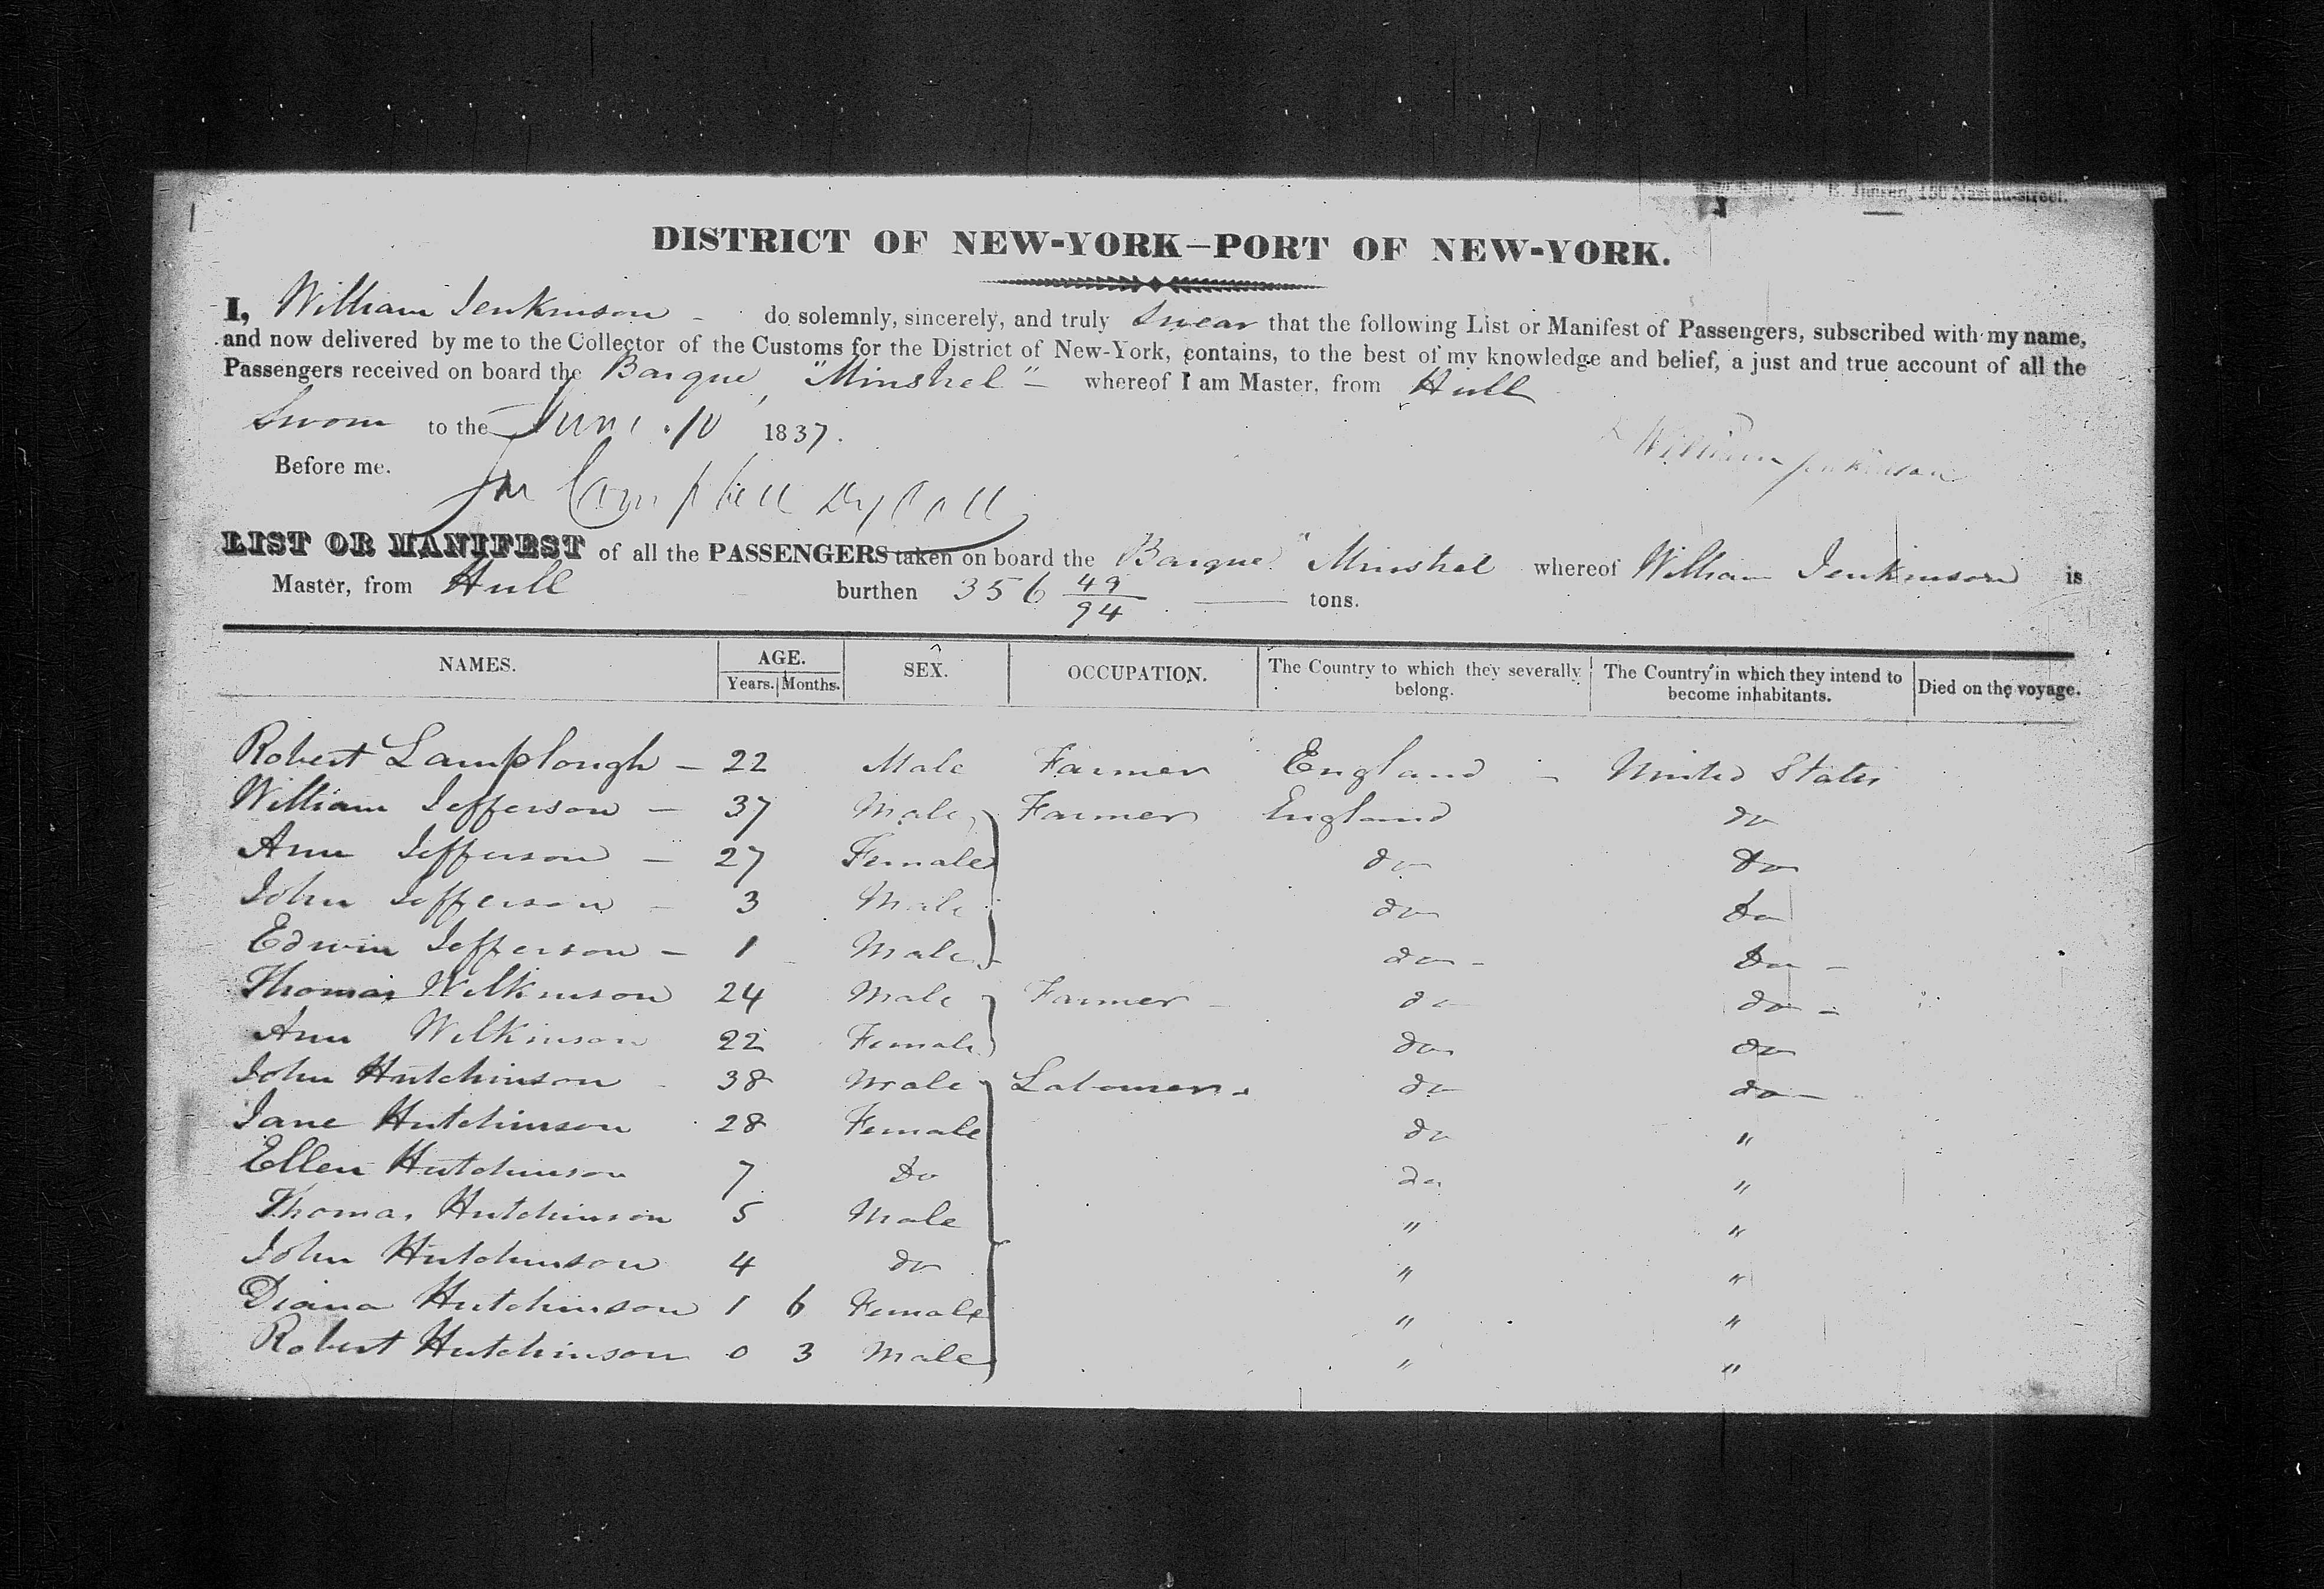 130 Nassau-street.
DISTRICT OF NEW-YORK—PORT OF NEW-YORK.
I, William Jenkinson - do solemnly, sincerely, and truly Swear that the following List or Manifest of Passengers, subscribed with my name,
and now delivered by me to the Collector of the Customs for the District of New-York, contains, to the best of my knowledge and belief, a just and true account of all the
Passengers received on board the Barque, "Minstrel" - whereof I am Master, from Hull
Sworn to the June 10 1837.
William Jenkinson
Before me.
Campbell
LIST OR MANIFEST of all the PASSENGERS taken on board the Barque "Minstrel whereof William Jenkinson is
Master, from Hull burthen 356 49/94 tons.
NAMES. AGE. Years. Months. SEX. OCCUPATION. The Country to which they severally belong. The Country in which they intend to become inhabitants. Died on the voyage.
Robert Lamplough - 22 Male Farmer England - United States
William Jefferson - 37 Male Farmer England do
Ann Jefferson - 27 Female do do
John Jefferson - 3 Male do do
Edwin Jefferson - 1 Male do - do -
Thomas Wilkinson 24 Male Farmer - do do -
Ann Wilkinson 22 Female do do
John Hutchinson 38 Male Labourer do do -
Jane Hutchinson 28 Female do "
Ellen Hutchinson 7 do do "
Thomas Hutchinson 5 Male " "
John Hutchinson 4 do " "
Diana Hutchinson 1 6 Female " "
Robert Hutchinson 0 3 Male " "